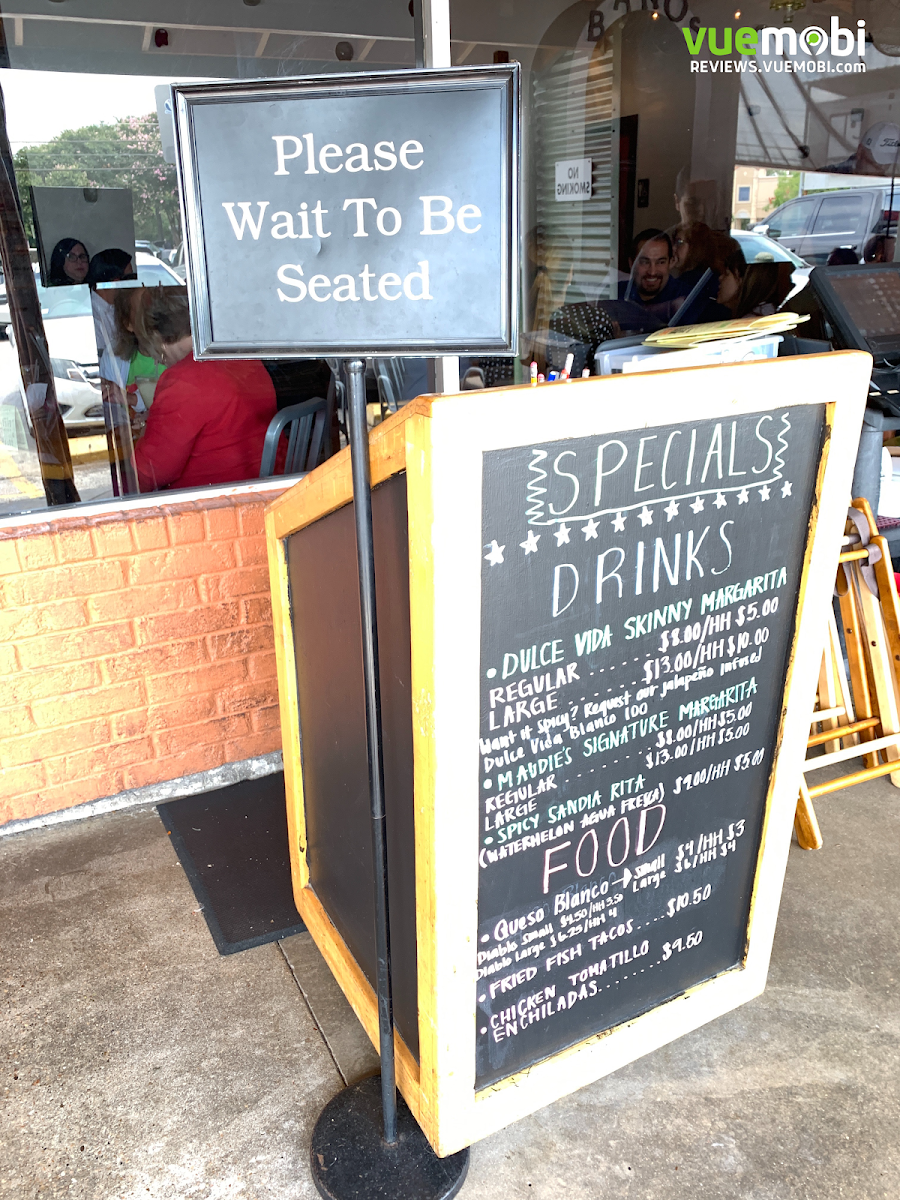 BAÑOS
vuemobi
REVIEWS.VUEMOBI.com
Please
Wait To Be
Seated
NO
SMOKING
SPECIALS
DRINKS
• DULCE VIDA SKINNY MARGARITA
REGULAR ....... $8.00/HH $5.00
LARGE ........ $13.00/HH $10.00
Want it spicy? Request our jalapeño infused
Dulce Vida Blanco 100
• MAUDIE'S SIGNATURE MARGARITA
REGULAR ......... $8.00/HH $5.00
LARGE $13.00/HH $5.00
• SPICY SANDIA RITA $9.00/HH $5.00
(WATERMELON AGUA FRESCA)
FOOD
• Queso Blanco → small $4/HH $3
Large $6/HH $4
Diablo small $4.50/HH 3.50
Diablo Large $6.25/HH 4
• FRIED FISH TACOS.....$10.50
• CHICKEN TOMATILLO
ENCHILADAS........$9.50